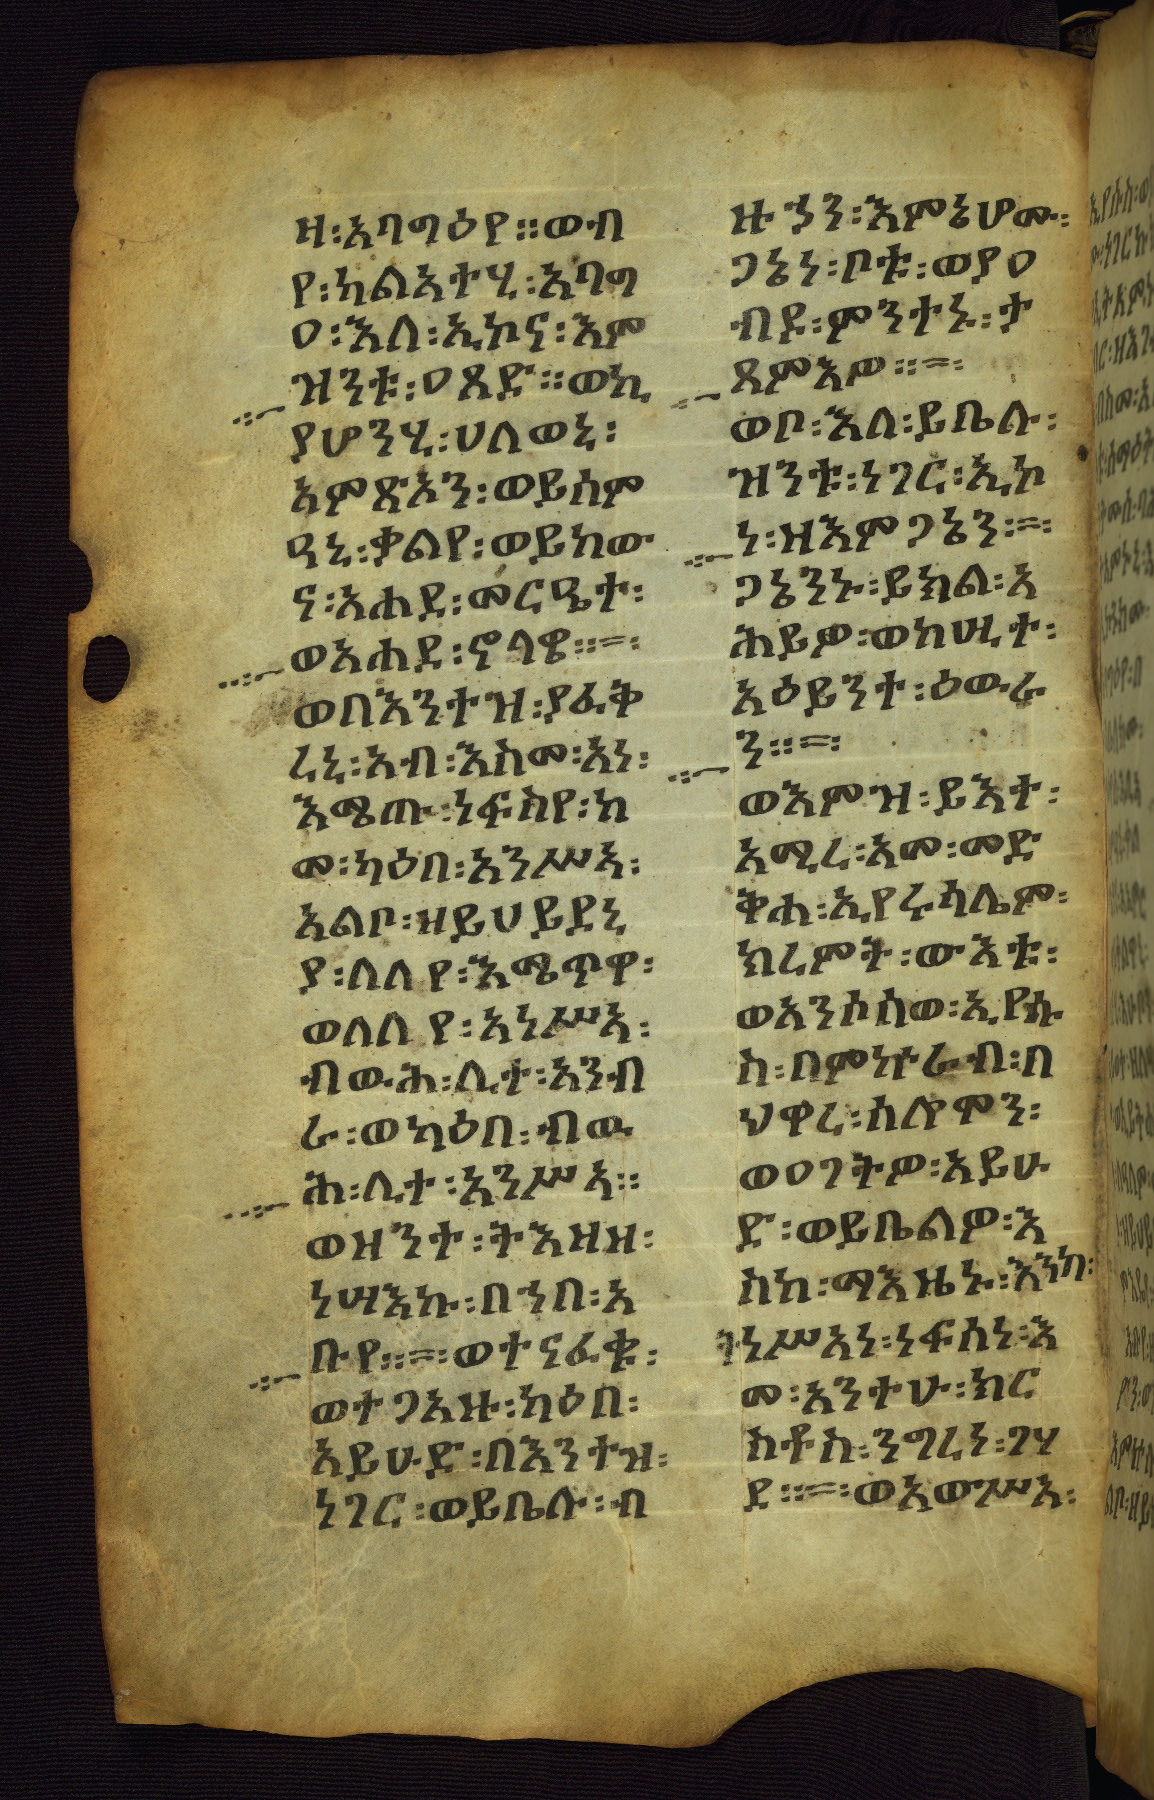 ዛ፡አባግዕየ፡፡ወብ
የ፡ካልአተሂ፡አባግ
ዐ፡እለ፡ኢኮና፡እም
ዝንቱ፡ዐጸድ፡፡ወኪ
ያሆንሂ፡ሀለወኒ፡
አምጽኦን፡ወይሰም
ዓኒ፡ቃልየ፡ወይከው
ና፡አሐደ፡መርዔተ፡
ወአሐደ፡ኖላዌ፡፡=፡
ወበእንተዝ፡ያፈቅ
ረኒ፡አብ፡እስመ፡አነ፡
እሜጡ፡ነፍስየ፡ከ
መ፡ካዕበ፡አንሥኣ፡
አልቦ፡ዘይሀይደኒ
ያ፡ለልየ፡እሜጥዋ፡
ወለልየ፡አነሥኣ፡
ብውሕ፡ሊተ፡አንብ
ራ፡ወካዕበ፡ብዉ
ሕ፡ሊተ፡አንሥኣ፡፡
ወዝንተ፡ትእዛዘ፡
ነሣእኩ፡በኀበ፡አ
ቡየ፡፡=፡ወተናፈቁ፡
ወተጋአዙ፡ካዕበ፡
አይሁድ፡በእንተዝ፡
ነገር፡ወይቤሉ፡ብ
ዙኃን፡እምኔሆሙ፡
ጋኔነ፡ቦቱ፡ወያዐ
ብደ፡ምንተኑ፡ታ
ጸምእዎ፡፡=፡
ወቦ፡እለ፡ይቤሉ፡
ዝንቱ፡ነገር፡ኢኮ
ነ፡ዘእምጋኔን፡=፡
ጋኔንኑ፡ይክል፡አ
ሕይዎ፡ወከሢተ፡
አዕይንተ፡ዕውራ
ን፡፡=፡
ወእምዝ፡ይእተ፡
አሚረ፡አመ፡መድ
ቅሐ፡ኢየሩሳሌም፡
ክረምት፡ውእቱ፡
ወአንሶሰወ፡ኢየሱ
ስ፡በምኵራብ፡በ
ህዋረ፡ሰሎሞን፡
ወዐገትዎ፡አይሁ
ድ፡ወይቤልዎ፡እ
ስከ፡ማእዜኑ፡እንከ፡
ትነሥአነ፡ነፍሰነ፡እ
መ፡አንተሁ፡ክር
ስቶስ፡ንግረነ፡ገሃ
ደ፡፡=፡ወአውሥአ፡